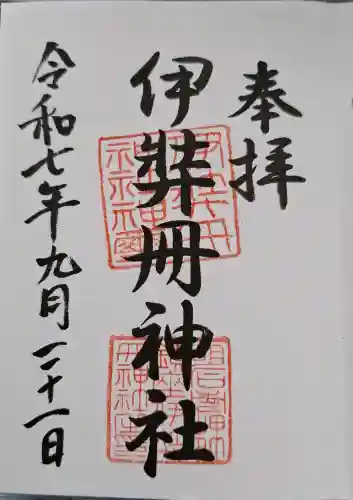 奉拝
伊弉冊神社
令和七年九月二十一日